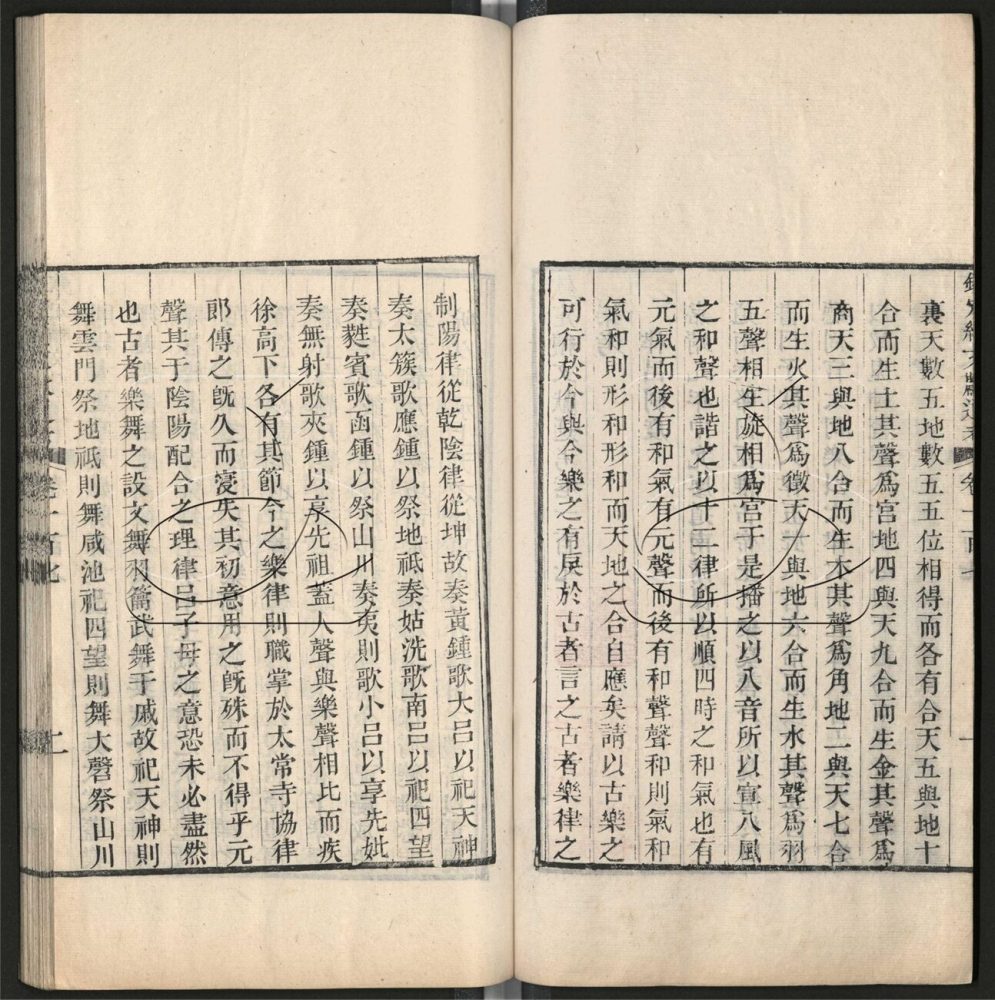 裏天數五地數五五位相得而各有合天五與地十
合而生土其聲爲宮地四與天九合而生金其聲爲
商天三與地八合而生木其聲爲角地二與天七合
而生火其聲爲徵天一與地六合而生水其聲爲羽
五聲相生旋相爲宮于是播之以八音所以宣八風
之和聲也諧之以十二律所以順四時之和氣也有
元氣而後有和氣有元聲而後有和聲聲和則氣和
氣和則形和形和而天地之合自應矣請以古樂之
可行於今與今樂之有戾於古者言之古者樂律之
制陽律從乾陰律從坤故奏黃鍾歌大呂以祀天神
奏太簇歌應鍾以祭地祇奏姑洗歌南呂以祀四望
奏蕤賓歌函鍾以祭山川奏夷則歌小呂以享先妣
奏無射歌夾鍾以享先祖蓋人聲與樂聲相比而疾
徐高下各有其節今之樂律則職掌於太常寺協律
郎傳之旣久而寖失其初意用之旣殊而不得乎元
聲其于陰陽配合之理律呂子母之意恐未必盡然
也古者樂舞之設文舞羽籥武舞干戚故祀天神則
舞雲門祭地祇則舞咸池祀四望則舞大磬祭山川
二